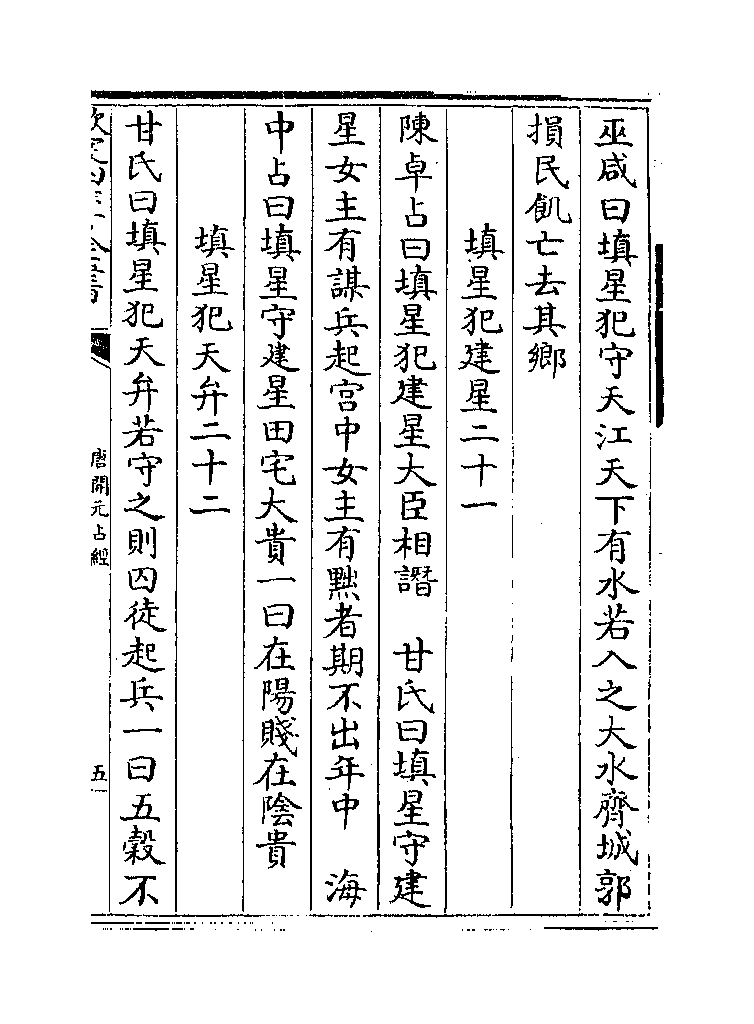 巫咸曰填星犯守天江天下有水若入之大水齊城郭
損民飢亡去其鄉
填星犯建星二十一
陳卓占曰填星犯建星大臣相譖　甘氏曰填星守建
星女主有謀兵起宫中女主有黜者期不出年中　海
中占曰填星守建星田宅大貴一曰在陽賤在陰貴
填星犯天弁二十二
甘氏曰填星犯天弁若守之則囚徒起兵一曰五穀不
唐開元占經
五